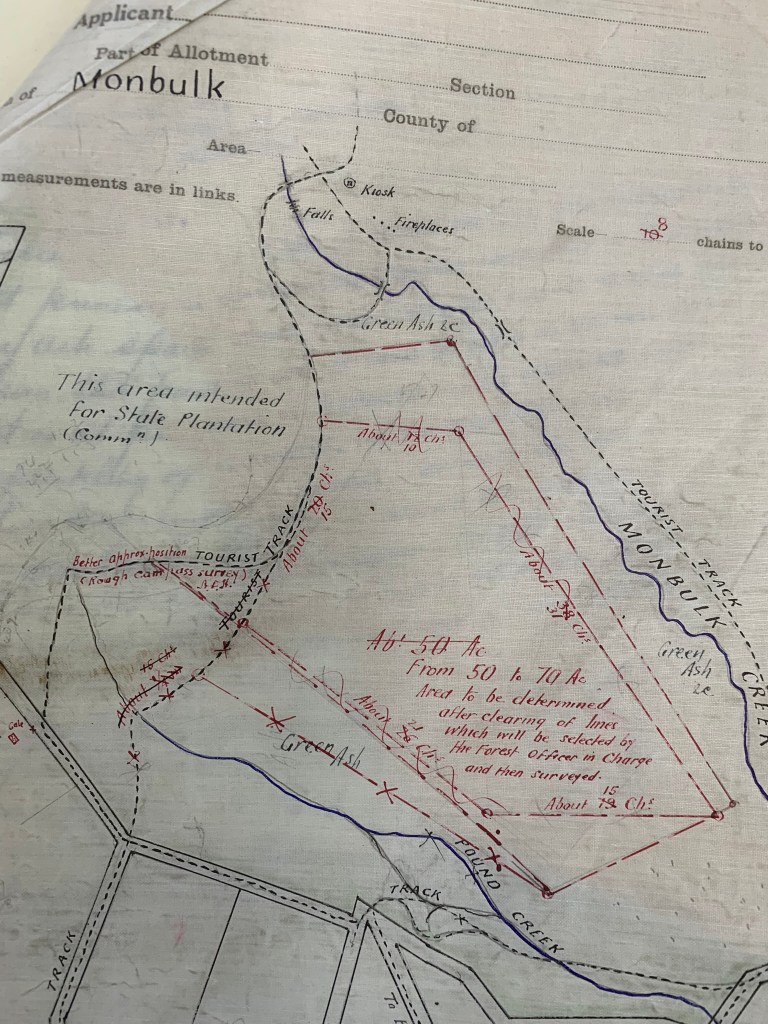 Applicant
Part of Allotment
Section
of Monbulk
County of
Area
measurements are in links.
Scale 10 8 chains to
Kiosk
Falls
Fireplaces
Green Ash 2c
This area intended
for State Plantation
(Commⁿ).
About 12 Chs
10
About 20 Chs
15
TOURIST TRACK
MONBULK CREEK
TOURIST TRACK
Better approx. position
(Rough Compass survey)
TOURIST TRACK
TOURIST
About 38 Chs
31
Abt 50 Ac
From 50 to 70 Ac
Area to be determined
after clearing of lines
which will be selected by
the Forest Officer in Charge
and then surveyed.
Green
Ash
2c.
About 15 Ch
About Chs
Green Ash
15
About 19 Chs
Gate
POUND CREEK
TRACK
TRACK
To